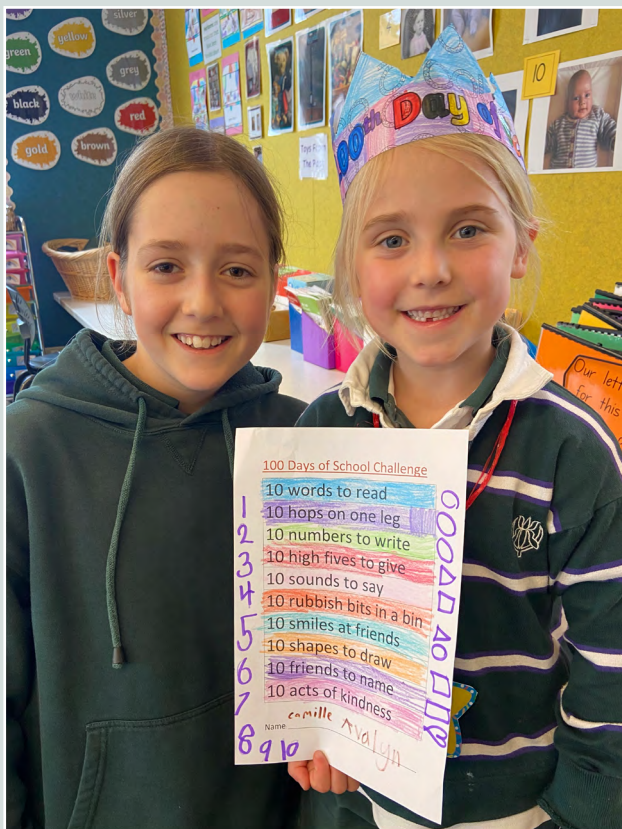 silver
green
yellow
grey
black
white
red
gold
brown
10
100th Day of
Toys From
The Past
100 Days of School Challenge
10 words to read
10 hops on one leg
10 numbers to write
10 high fives to give
10 sounds to say
10 rubbish bits in a bin
10 smiles at friends
10 shapes to draw
10 friends to name
10 acts of kindness
1
2
3
4
5
6
7
8 9 10
Name camille Avalyn
Our lett
for this